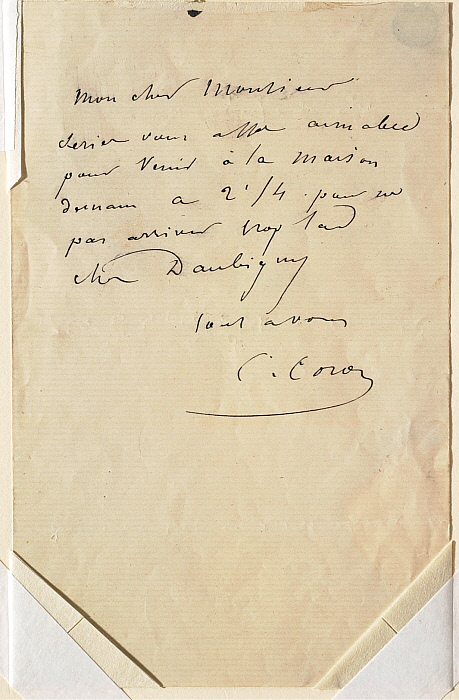 Mon cher Monsieur
Seriez vous assez aimable
pour venir à la maison
demain a 2 1/4 pour ne
pas arriver trop tard
chez Daubigny
tout a vous
C. Corot